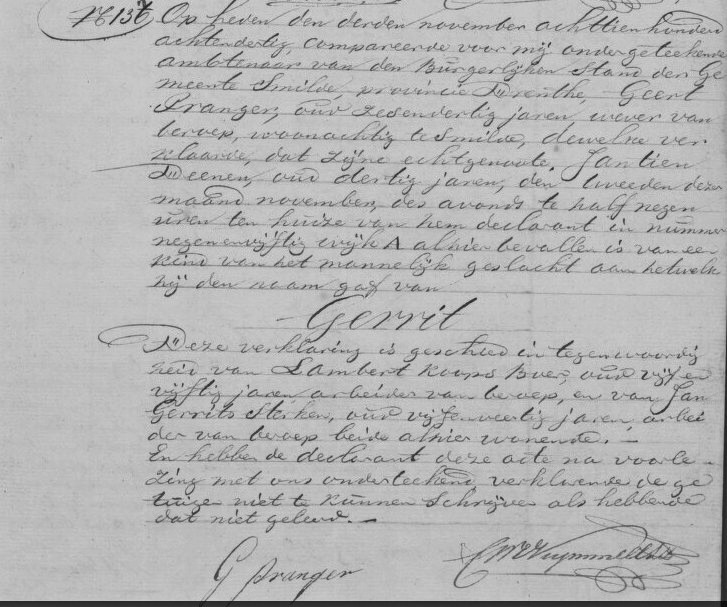 No 137 Op heden den derden november achttienhonderd
achtendertig, compareerde voor mij ondergeteekende
ambtenaar van den Burgerlijken Stand der Ge
meente Smilde, provincie Drenthe, Geert
Pranger, oud zesendertig jaren, wever van
beroep, woonachtig te Smilde, dewelke ver
klaarde, dat zijne echtgenoote, Jantien
Deenen, oud dertig jaren, den tweeden dezer
maand november, des avonds te half negen
uren ten huize van hem declarant in nummer
negenenvijftig wijk A alhier bevallen is van een
kind van het mannelijk geslacht aan hetwelk
hij den naam gaf van
Gerrit
Deze verklaring is geschied in tegenwoordig
heid van Lambert Koops Boer, oud vijf en
vijftig jaren arbeider van beroep, en van Jan
Gerrits Sterken, oud vijfenveertig jaren, arbei
der van beroep beide alhier wonende. —
En hebben de declarant deze acte na voorle-
zing met ons onderteekend, verklarende de ge
tuigen niet te kunnen schrijven als hebbende
dat niet geleerd. —
G Pranger